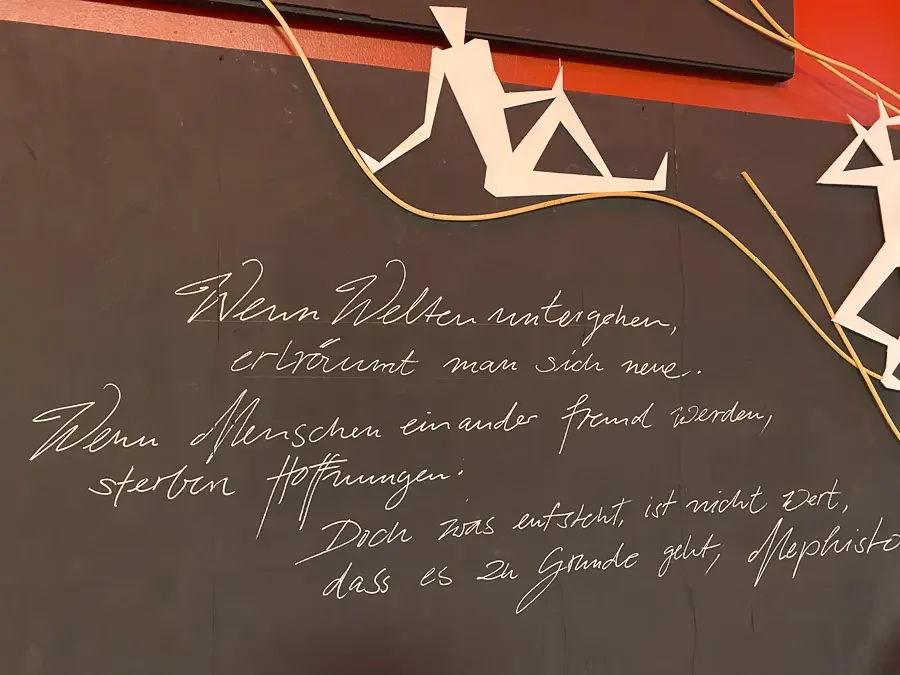 Wenn Welten untergehen,
erträumt man sich neue.
Wenn Menschen einander fremd werden,
sterben Hoffnungen.
Doch was entsteht, ist nicht wert,
dass es zu Grunde geht, Mephisto